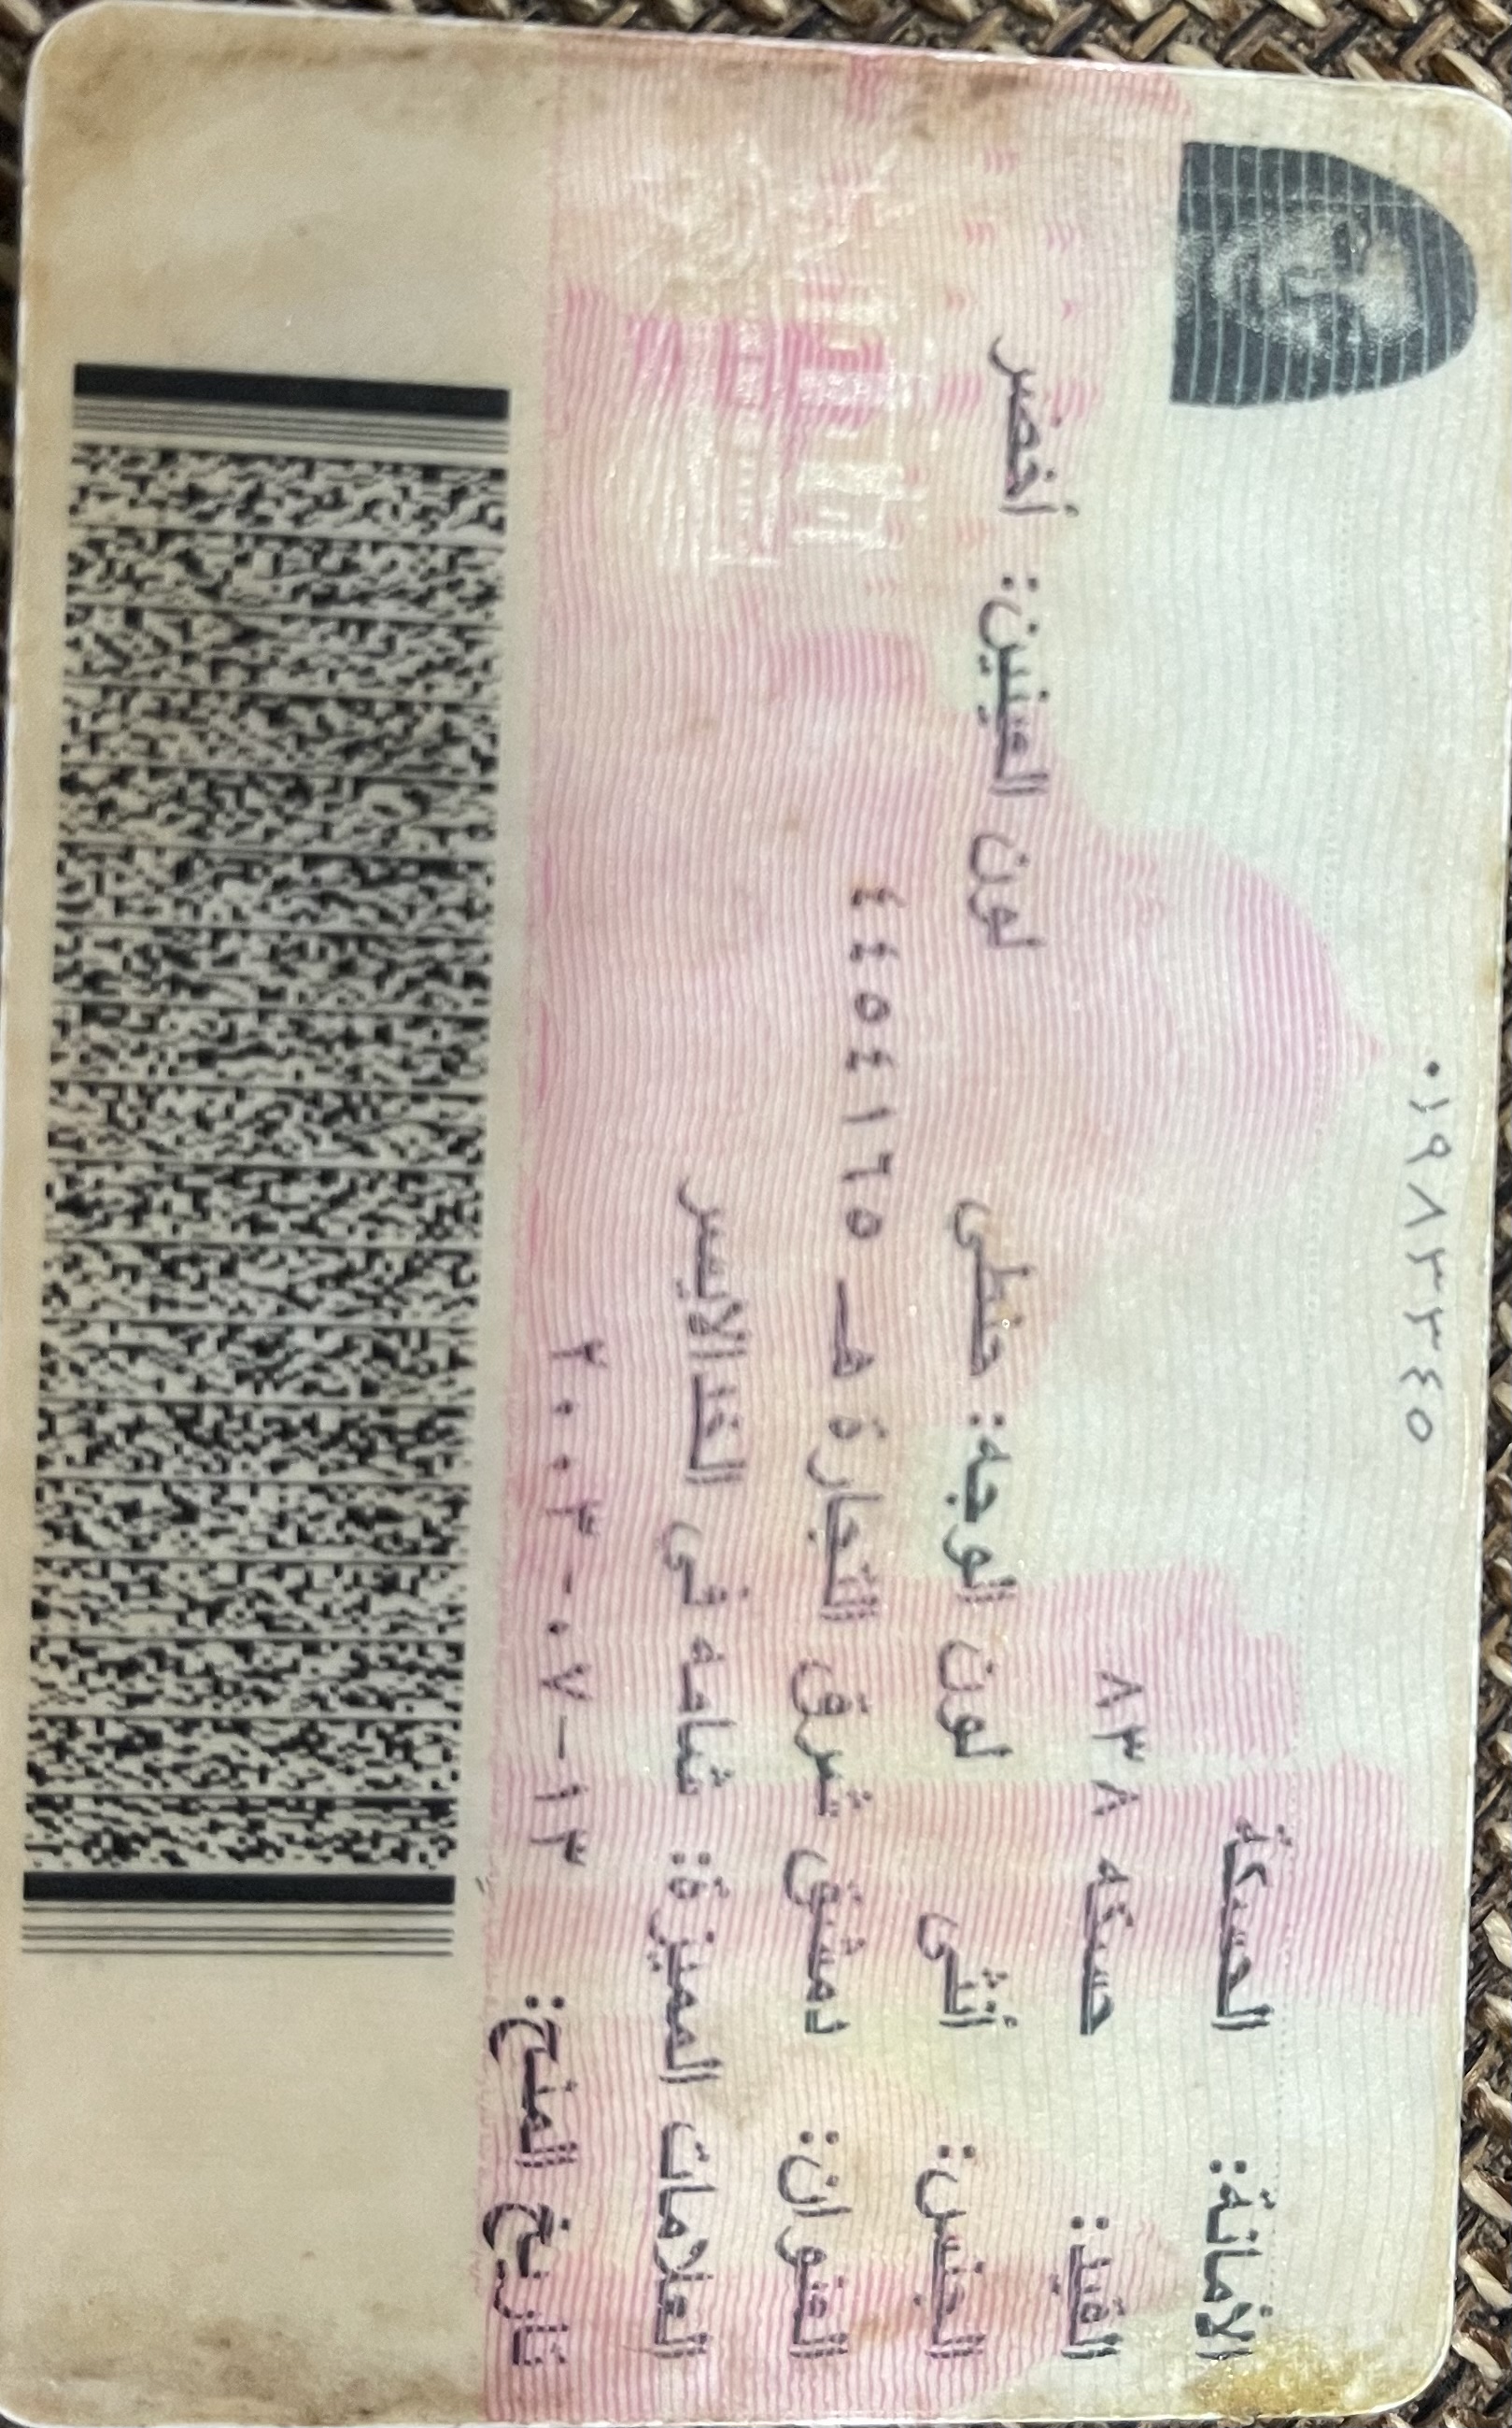 ٠١٩٨٢٢٣٤٥
الأمانة: الحسكة
القيد: حسكه ٨٣٨
الجنس: أنثى لون الوجه: حنطي لون العينين: أخضر
العنوان: دمشق شرق التجارة هـ ٤٤٥٤١٦٥
العلامات المميزة: شامه في الخد الايسر
تاريخ المنح: ٢٠٠٣-٠٧-١٣